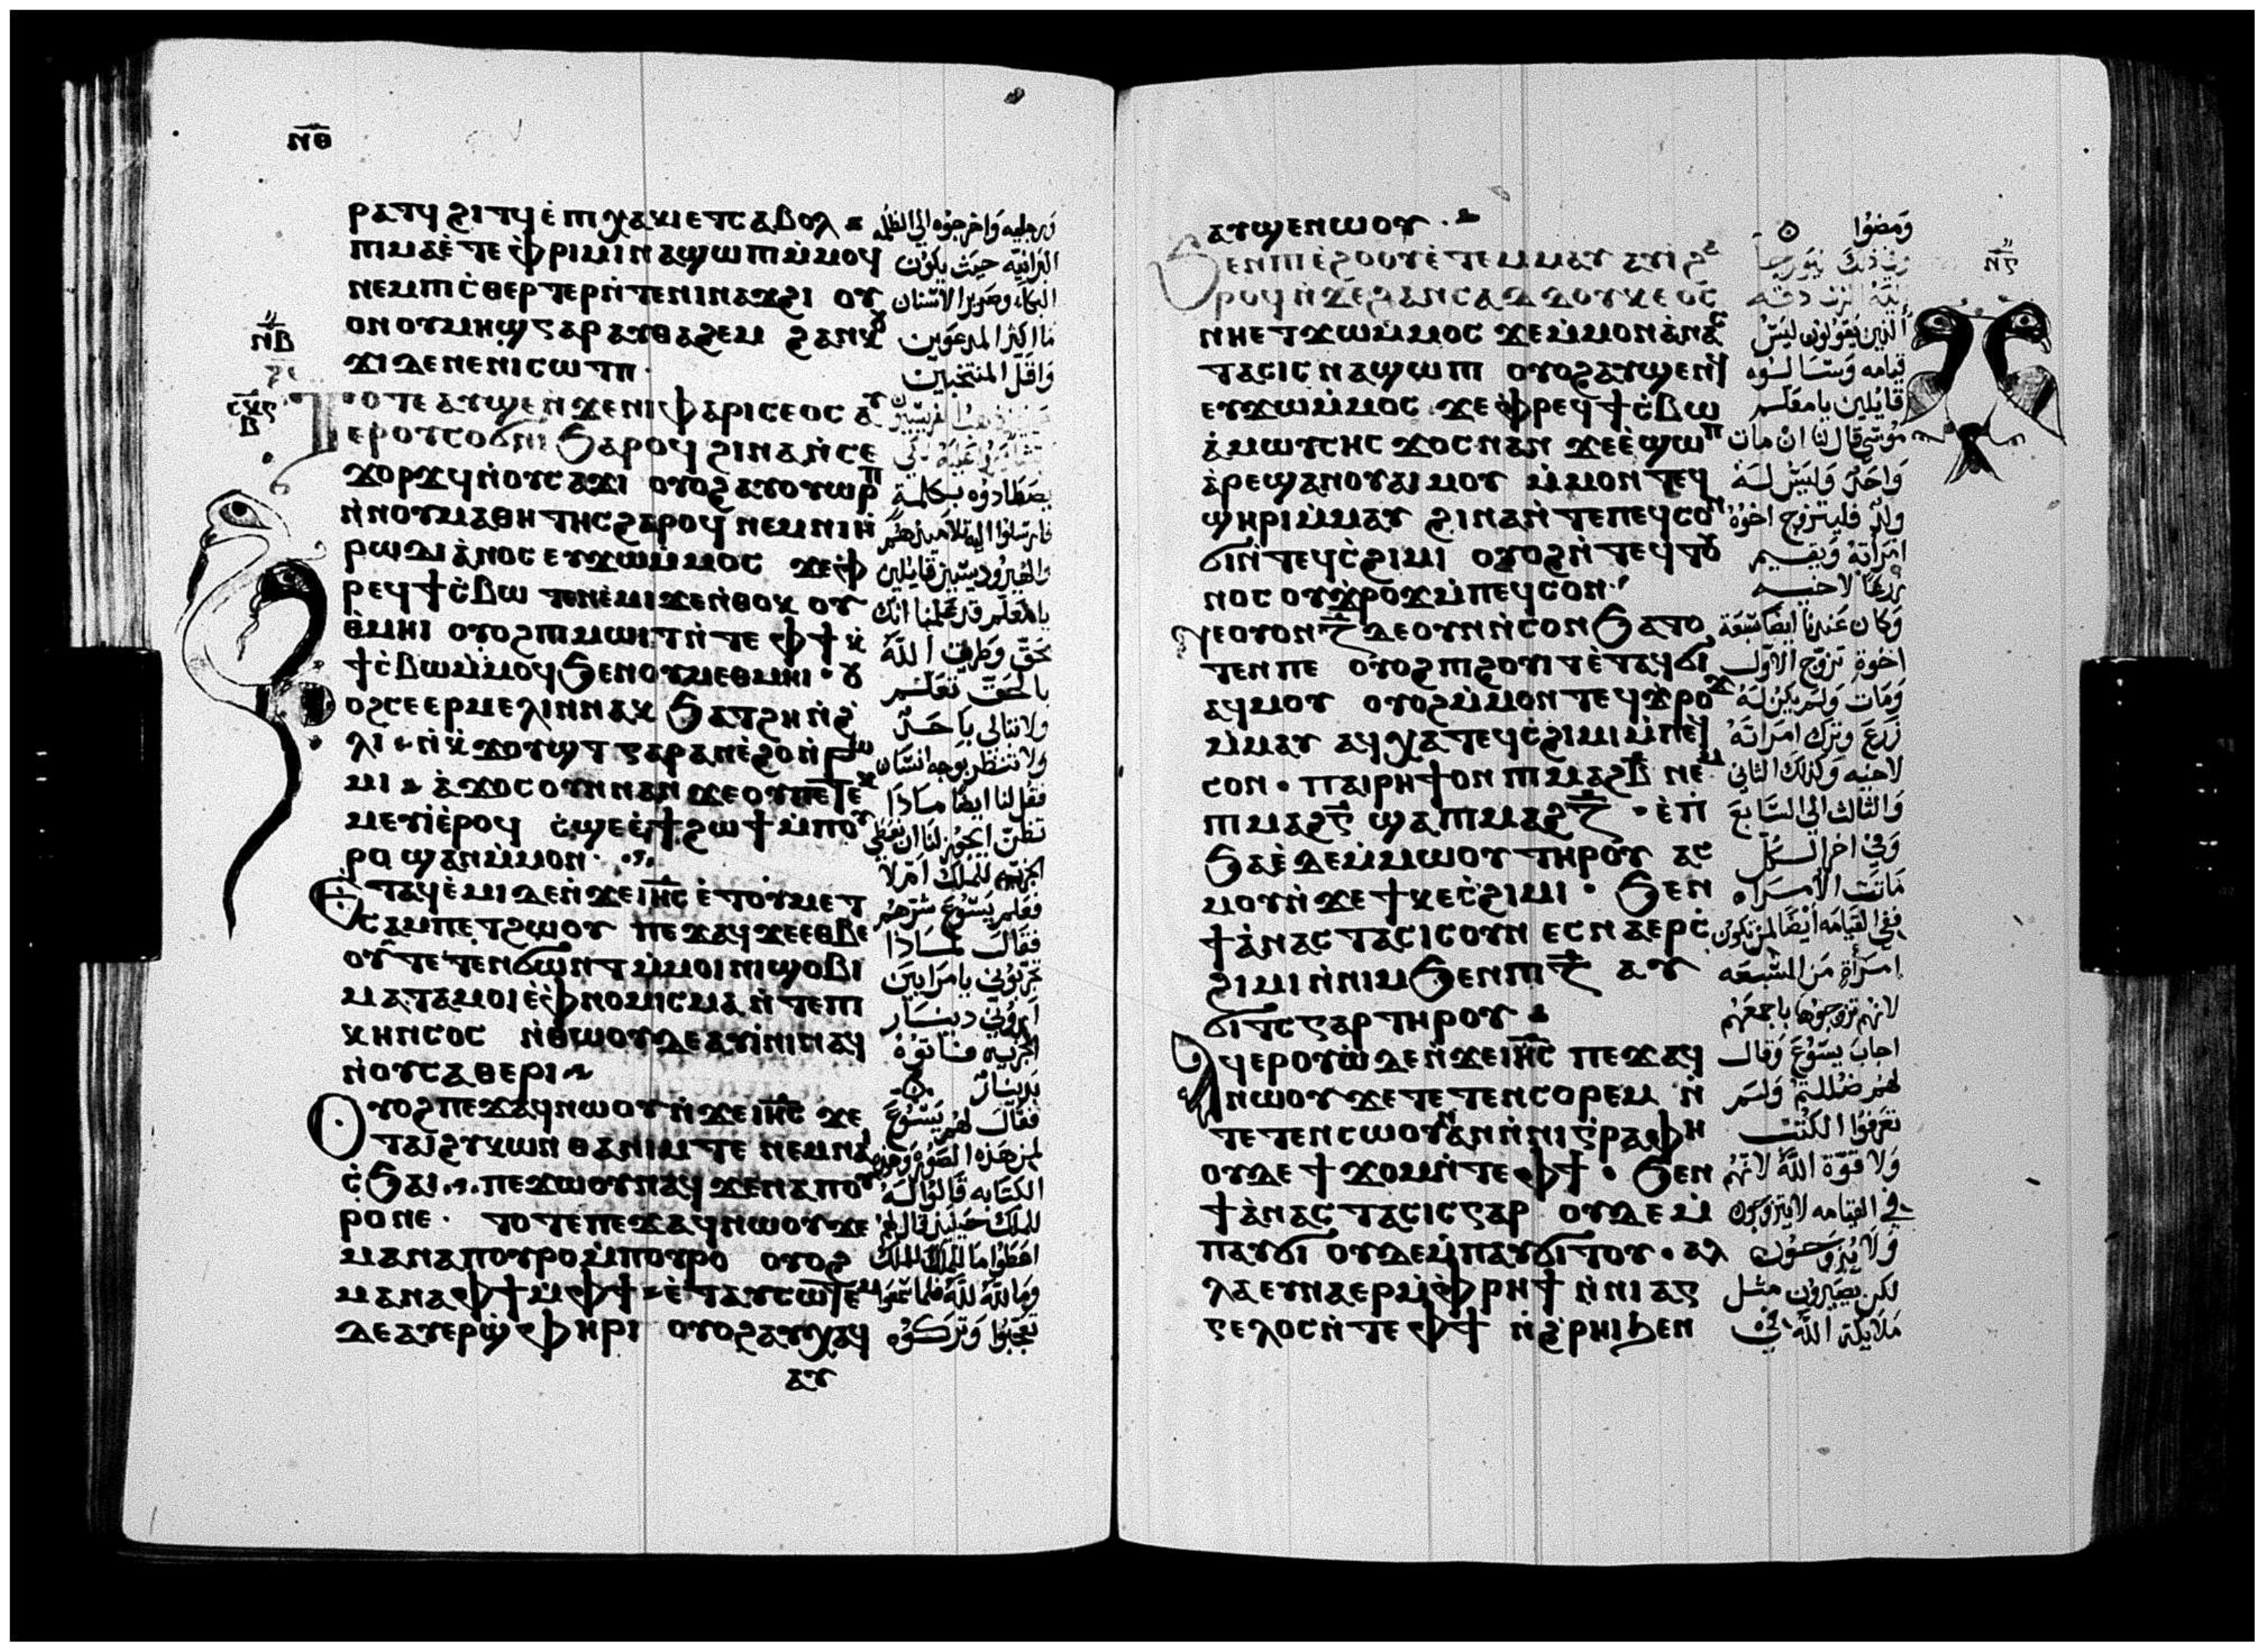 ⲛ̅ⲑ̅
ⲣⲁⲧϥ ϩⲓⲧϥ ⲉ̀ⲡⲓⲭⲁⲕⲓ ⲉⲧⲥⲁⲃⲟⲗ
ⲡⲓⲙⲁ ⲉ̀ⲧⲉ ⲫⲣⲓⲙⲓ ⲛⲁϣⲱⲡⲓ ⲙ̀ⲙⲟϥ
ⲛⲉⲙ ⲡⲓⲥ̀ⲑⲉⲣⲧⲉⲣ ⲛ̀ⲧⲉ ⲛⲓⲛⲁϫϩⲓ ⲟⲩ
ⲟⲛ ⲟⲩⲙⲏϣ ⲅⲁⲣ ⲁⲩⲑⲁϩⲉⲙ ϩⲁⲛⲕⲟⲩ
ϫⲓ ⲇⲉ ⲛⲉ ⲛⲓⲥⲱⲧⲡ
ⲧⲟⲧⲉ ⲁⲩϣⲉ ⲛ̀ϫⲉ ⲛⲓⲫⲁⲣⲓⲥⲉⲟⲥ ⲁⲩ
ⲉⲣⲟⲩⲥⲟϭⲛⲓ ϧⲁⲣⲟϥ ϩⲓⲛⲁ ⲛ̀ⲥⲉ
ϫⲟⲣϫϥ ⲛ̀ⲟⲩⲥⲁϫⲓ ⲟⲩⲟϩ ⲁⲩⲟⲩⲱⲣⲡ
ⲛ̀ⲛⲟⲩⲙⲁⲑⲏⲧⲏⲥ ϩⲁⲣⲟϥ ⲛⲉⲙ ⲛⲓⲏ
ⲣⲱⲇⲓⲁ̀ⲛⲟⲥ ⲉⲩϫⲱⲙ̀ⲙⲟⲥ ϫⲉ ⲫ
ⲣⲉϥϯⲥ̀ⲃⲱ ⲧⲉⲛⲉ̀ⲙⲓ ϫⲉ ⲛ̀ⲑⲟⲕ ⲟⲩ
ⲑ̀ⲙⲏⲓ ⲟⲩⲟϩ ⲡⲓⲙⲱⲓⲧ ⲛ̀ⲧⲉ ⲫϯ ⲕ̀
ϯⲥ̀ⲃⲱ ⲙ̀ⲙⲟϥ ϧⲉⲛ ⲟⲩⲙⲉⲑⲙⲏⲓ · ⲟⲩ
ⲟϩ ⲥⲉⲉⲣⲙⲉⲗⲓⲛ ⲛⲁⲕ ϧⲁⲧϩⲏ ⲛ̀ϩ
ⲗⲓ ⲛ̀ⲕ̀ϫⲟⲩϣⲧ ⲅⲁⲣ ⲁⲛ ⲉ̀ϩⲟ ⲛ̀ⲣⲱ
ⲙⲓ ⲁ̀ϫⲟⲥ ⲟⲩⲛ ⲛⲁⲛ ϫⲉ ⲟⲩ ⲡⲉⲧⲉⲕ
ⲙⲉⲩⲓ ⲉ̀ⲣⲟϥ ⲥ̀ϣⲉ ⲉ̀ϯϩⲱϯ ⲙ̀ⲡⲟⲩ
ⲣⲟ ϣⲁⲛ ⲙ̀ⲙⲟⲛ
ⲉⲧⲁϥⲉ̀ⲙⲓ ⲇⲉ ⲛ̀ϫⲉ ⲓⲏ̅ⲥ̅ ⲉ̀ⲧⲟⲩⲙⲉⲧ
ⲥⲁⲙⲡⲉⲧϩⲱⲟⲩ ⲡⲉϫⲁϥ ϫⲉ ⲉⲑⲃⲉ
ⲟⲩ ⲧⲉⲧⲉⲛϭⲱⲛⲧ ⲙ̀ⲙⲟⲓ ⲛⲓϣⲟⲃⲓ
ⲙⲁⲧⲁⲙⲟⲓ ⲉ̀ⲫⲛⲟⲙⲓⲥⲙⲁ ⲛ̀ⲧⲉ ⲡⲓ
ⲕⲏⲛⲥⲟⲥ ⲛ̀ⲑⲱⲟⲩ ⲇⲉ ⲁⲩⲓ̀ⲛⲓ ⲛⲁϥ
ⲛ̀ⲟⲩⲥⲁⲑⲉⲣⲓ
ⲟⲩⲟϩ ⲡⲉϫⲁϥ ⲛⲱⲟⲩ ⲛ̀ϫⲉ ⲓⲏ̅ⲥ̅ ϫⲉ
ⲧⲁⲓϩⲩⲕⲱⲛ ⲑⲁ ⲛⲓⲙ ⲧⲉ ⲛⲉⲙ ⲛⲁⲓ
ⲥ̀ϧⲁⲓ ⲡⲉϫⲱⲟⲩ ⲛⲁϥ ϫⲉ ⲛⲁ ⲡⲟⲩ
ⲣⲟ ⲛⲉ · ⲧⲟⲧⲉ ⲡⲉϫⲁϥ ⲛⲱⲟⲩ ϫⲉ
ⲙⲁ ⲛⲁ ⲡⲟⲩⲣⲟ ⲙ̀ⲡⲟⲩⲣⲟ ⲟⲩⲟϩ
ⲙⲁ ⲛⲁ ⲫϯ ⲙ̀ⲫϯ ⲉ̀ⲧⲁⲩⲥⲱⲧⲉⲙ
ⲇⲉ ⲁⲩⲉⲣϣ̀ⲫⲏⲣⲓ ⲟⲩⲟϩ ⲁⲩⲭⲁϥ
ⲁⲩ
ⲛ̅ⲃ̅
ⲥ̅ⲕ̅ⲅ̅
ⲃ̅
ورجليه واخرجوه الي الظلمه
البرانيه حيث يكون
البكاء وصرير الاسنان
ما اكثر المدعوين
واقل المنتخبين
يصطادوه بكلمة
فارسلوا اليه تلاميذهم
والهيروديسيين قايلين
يا معلم قد علمنا انك
محق وطريق الله
بالحق تعلم
ولا تبالي باحد
ولا تنظر بوجه انسان
فقل لنا ايضا ماذا
تظن ايجوز لنا ان نعطي
الجزيه للملك ام لا
فعلم يسوع شرهم
فقال لماذا
تجربوني يا مرايين
اروني دينار
الجزيه فاتوه
بدينار
فقال لهم يسوع
لمن هذه الصوره وهذه
الكتابه قالوا له
للملك حينيذ قال لهم
اعطوا ما للملك للملك
وما لله لله فلما سمعوا
تعجبوا وتركوه
ⲁⲩϣⲉⲛⲱⲟⲩ
ϧⲉⲛ ⲡⲓⲉ̀ϩⲟⲟⲩ ⲉ̀ⲧⲉⲙⲙⲁⲩ ⲁⲩⲓ̀ ϩⲁ
ⲣⲟϥ ⲛ̀ϫⲉ ϩⲁⲛⲥⲁⲇⲇⲟⲩⲕⲉⲟⲥ
ⲛⲏ ⲉⲧϫⲱⲙ̀ⲙⲟⲥ ϫⲉ ⲙ̀ⲙⲟⲛ ⲁ̀ⲛⲁⲥ
ⲧⲁⲥⲓⲥ ⲛⲁϣⲱⲡⲓ ⲟⲩⲟϩ ⲁⲩϣⲉⲛϥ
ⲉⲩϫⲱⲙ̀ⲙⲟⲥ ϫⲉ ⲫⲣⲉϥϯⲥ̀ⲃⲱ
ⲁ̀ ⲙⲱⲩⲥⲏⲥ ϫⲟⲥ ⲛⲁⲛ ϫⲉ ⲉ̀ϣⲱⲡ
ⲁ̀ⲣⲉϣⲁⲛ ⲟⲩⲁⲓ ⲙⲟⲩ ⲙ̀ⲙⲟⲛ ⲧⲉϥ
ϣⲏⲣⲓ ⲙ̀ⲙⲁⲩ ϩⲓⲛⲁ ⲛ̀ⲧⲉ ⲡⲉϥⲥⲟⲛ
ϭⲓ ⲛ̀ⲧⲉϥⲥ̀ϩⲓⲙⲓ ⲟⲩⲟϩ ⲛ̀ⲧⲉϥⲧⲟⲩ
ⲛⲟⲥ ⲟⲩϫ̀ⲣⲟϫ ⲙ̀ⲡⲉϥⲥⲟⲛ
ⲛⲉⲟⲩⲟⲛ ⲍ̅ ⲇⲉ ⲟⲩⲛ ⲛ̀ⲥⲟⲛ ϧⲁⲧⲟ
ⲧⲉⲛ ⲡⲉ ⲟⲩⲟϩ ⲡⲓϩⲟⲩⲓⲧ ⲉ̀ⲧⲁϥϭⲓ
ⲁϥⲙⲟⲩ ⲟⲩⲟϩ ⲙ̀ⲙⲟⲛ ⲧⲉϥϫ̀ⲣⲟϫ
ⲙ̀ⲙⲁⲩ ⲁϥⲭⲁ ⲧⲉϥⲥ̀ϩⲓⲙⲓ ⲙ̀ⲡⲉϥ
ⲥⲟⲛ · ⲡⲁⲓⲣⲏϯ ⲟⲛ ⲡⲓⲙⲁϩⲃ̅ ⲛⲉⲙ
ⲡⲓⲙⲁϩⲅ̅ ϣⲁ ⲡⲓⲙⲁϩⲍ̅ · ⲉ̀ⲡ
ϧⲁⲉ̀ ⲇⲉ ⲙ̀ⲙⲱⲟⲩ ⲧⲏⲣⲟⲩ ⲁⲥ
ⲙⲟⲩ ⲛ̀ϫⲉ ϯⲕⲉⲥ̀ϩⲓⲙⲓ · ϧⲉⲛ
ϯⲁ̀ⲛⲁⲥⲧⲁⲥⲓⲥ ⲟⲩⲛ ⲉⲥⲛⲁⲉⲣⲥ̀
ϩⲓⲙⲓ ⲛ̀ⲛⲓⲙ ϧⲉⲛ ⲡⲓⲍ̅ ⲁⲩ
ϭⲓⲧⲥ ⲅⲁⲣ ⲧⲏⲣⲟⲩ
ⲁϥⲉⲣⲟⲩⲱ̀ ⲇⲉ ⲛ̀ϫⲉ ⲓⲏ̅ⲥ̅ ⲡⲉϫⲁϥ
ⲛⲱⲟⲩ ϫⲉ ⲧⲉⲧⲉⲛⲥⲟⲣⲉⲙ ⲛ̀
ⲧⲉⲧⲉⲛⲥⲱⲟⲩⲛ ⲁⲛ ⲛ̀ⲛⲓⲅⲣⲁⲫⲏ
ⲟⲩⲇⲉ ϯϫⲟⲙ ⲛ̀ⲧⲉ ⲫϯ · ϧⲉⲛ
ϯⲁ̀ⲛⲁⲥⲧⲁⲥⲓⲥ ⲅⲁⲣ ⲟⲩⲇⲉ ⲙ̀
ⲡⲁⲩϭⲓ ⲟⲩⲇⲉ ⲙ̀ⲡⲁⲩϭⲓⲧⲟⲩ · ⲁⲗ
ⲗⲁ ⲉⲩⲛⲁⲉⲣ ⲙ̀ⲫⲣⲏϯ ⲛ̀ⲛⲓⲁⲅ
ⲅⲉⲗⲟⲥ ⲛ̀ⲧⲉ ⲫϯ ⲛ̀ϩⲣⲏⲓ ϧⲉⲛ
ⲛ̅ⲅ̅
ومضوا
الذين يقولون ليس
قيامه وسالوه
قايلين يا معلم
موسي قال لنا ان مات
واحد وليس له
ولد فليتزوج اخوه
امراته ويقيم
زرعا لاخيه
وكان عندنا ايضا سبعة
اخوة تزوج الاول
ومات ولم يكن له
زرع وترك امراته
لاخيه وكذلك الثاني
والثالث الي السابع
وفي اخر الكل
ماتت الامراه
ففي القيامه ايضا لمن تكون
امراة من السبعه
لانهم تزوجوها باجمعهم
اجاب يسوع وقال
لهم ضللتم ولستم
تعرفوا الكتب
ولا قوة الله لانهم
في القيامه لا يتزوجون
ولا يزوجون
لكن يصيرون مثل
ملايكة الله في